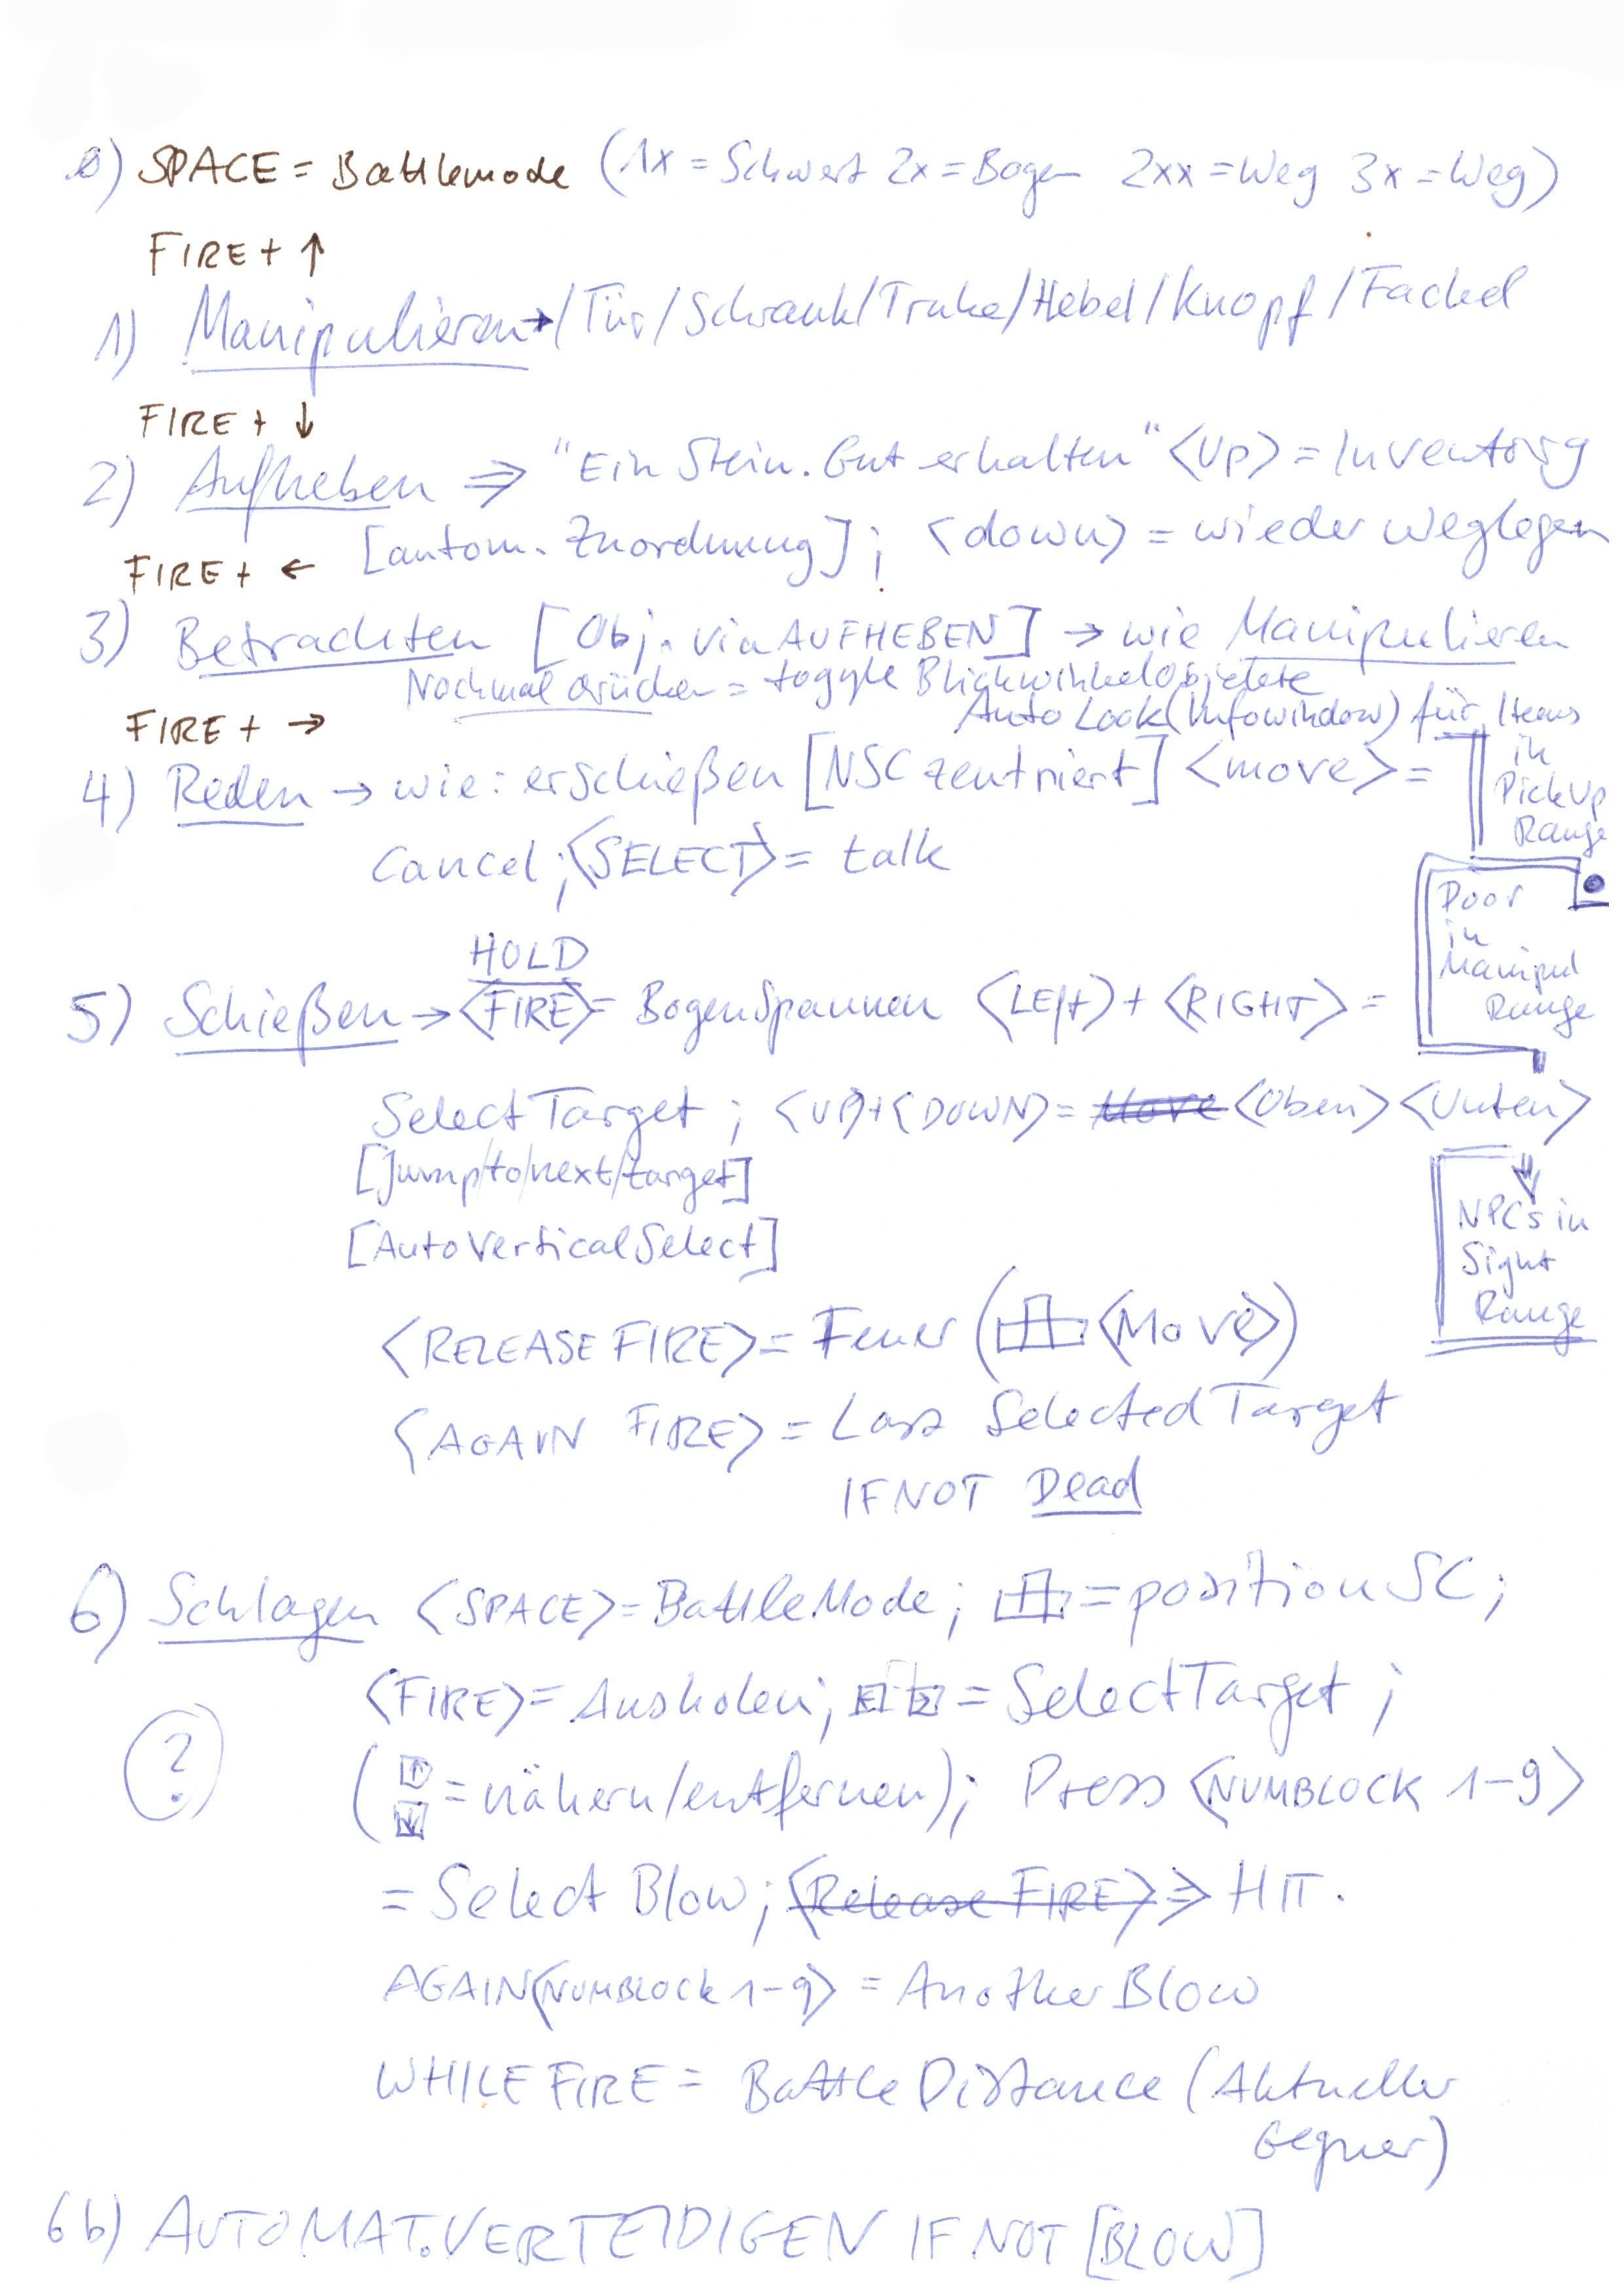 0) SPACE = Battlemode (1x = Schwert 2x = Bogen 2xx = Weg 3x = Weg)
FIRE + ↑
1) Manipulieren → /Tür/Schrank/Truhe/Hebel/Knopf/Fackel
FIRE + ↓
2) Aufheben ⇒ "Ein Stein. Gut erhalten" <Up> = Inventory
[autom. Zuordnung]; <down> = wieder weglegen
FIRE + ←
3) Betrachten [Obj. via AUFHEBEN] → wie Manipulieren
Nochmal drücken = toggle Blickwinkelobjekte
Auto Look (Infowindow) für Items
in
PickUp
Range
FIRE + →
4) Reden → wie: erschießen [NSC zentriert] <move> =
Cancel; <SELECT> = talk
Door
in
Manipul
Range
HOLD
5) Schießen → <FIRE> = BogenSpannen <LEft> + <RIGHT> =
Select Target; <UP> + <DOWN> = Move <Oben> <Unten>
[Jump/to/next/target]
[AutoVerticalSelect]
NPCs in
Sight
Range
<RELEASE FIRE> = Feuer (<Move>)
<AGAIN FIRE> = Last Selected Target
IF NOT Dead
6) Schlagen <SPACE> = BattleMode; = position SC;
<FIRE> = Ausholen; ← → = Select Target;
?
(↑ ↓ = nähern/entfernen); Press <NUMBLOCK 1-9>
= Select Blow; <Release FIRE> ⇒ HIT.
AGAIN <NUMBLOCK 1-9> = Another Blow
WHILE FIRE = Battle Distance (Aktueller
Gegner)
6b) AUTOMAT. VERTEIDIGEN IF NOT [BLOW]